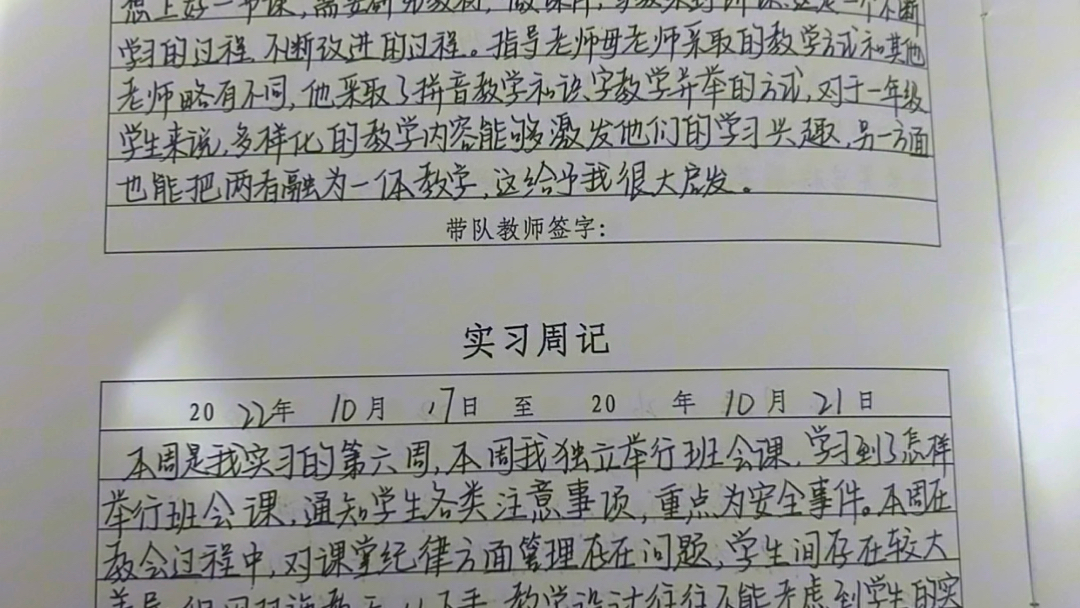 想上好一节课，需要研究教材，做课件，写教案到讲课，这是一个不断
学习的过程，不断改进的过程。指导老师母老师采取的教学方式和其他
老师略有不同，他采取了拼音教学和识字教学并举的方式，对于一年级
学生来说，多样化的教学内容能够激发他们的学习兴趣，另一方面
也能把两者融为一体教学，这给予我很大启发。
带队教师签字：
实习周记
20 22年 10月 17日 至 20 年 10月 21日
本周是我实习的第六周，本周我独立举行班会课，学习到了怎样
举行班会课，通知学生各类注意事项，重点为安全事件。本周在
教会过程中，对课堂纪律方面管理存在问题，学生间存在较大
差异，教学设计往往不能考虑到学生的实